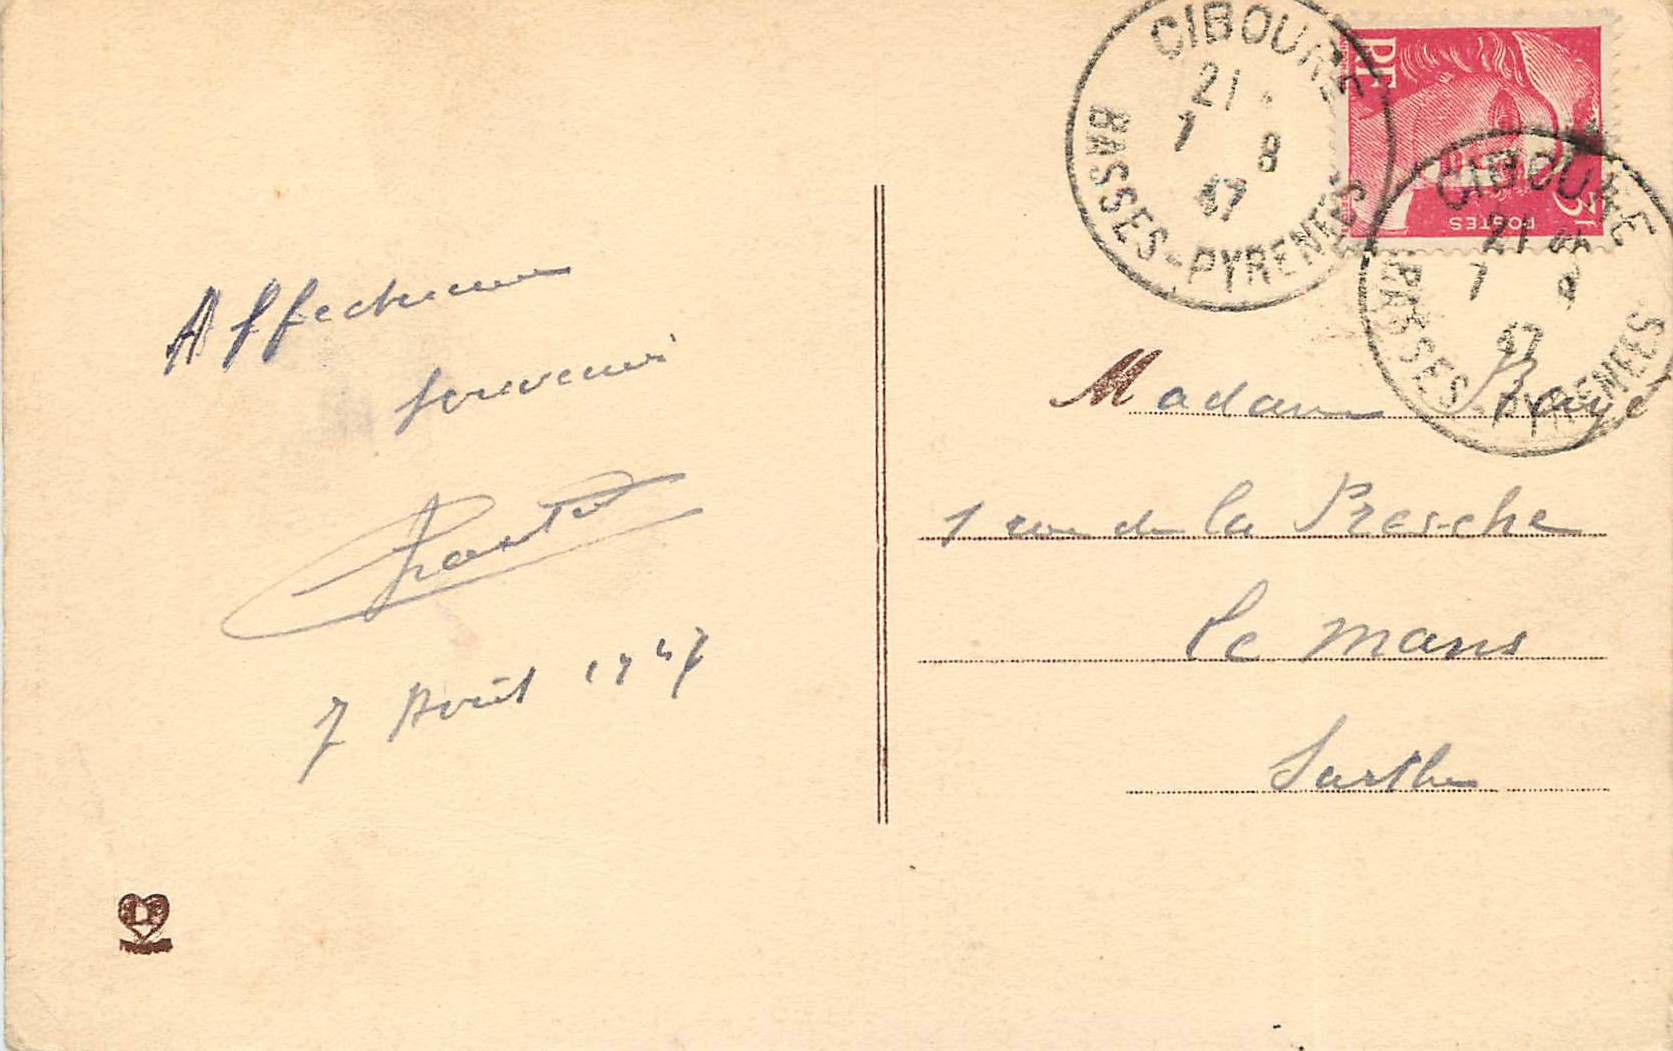 Affectueux
souvenir
7 Août 1947
CIBOURE
21
7 8
47
BASSES-PYRENEES
RF
POSTES
3F
CIBOURE
21
7 8
47
BASSES-PYRENEES
Madame
1 rue de la Presche
Le Mans
Sarthe